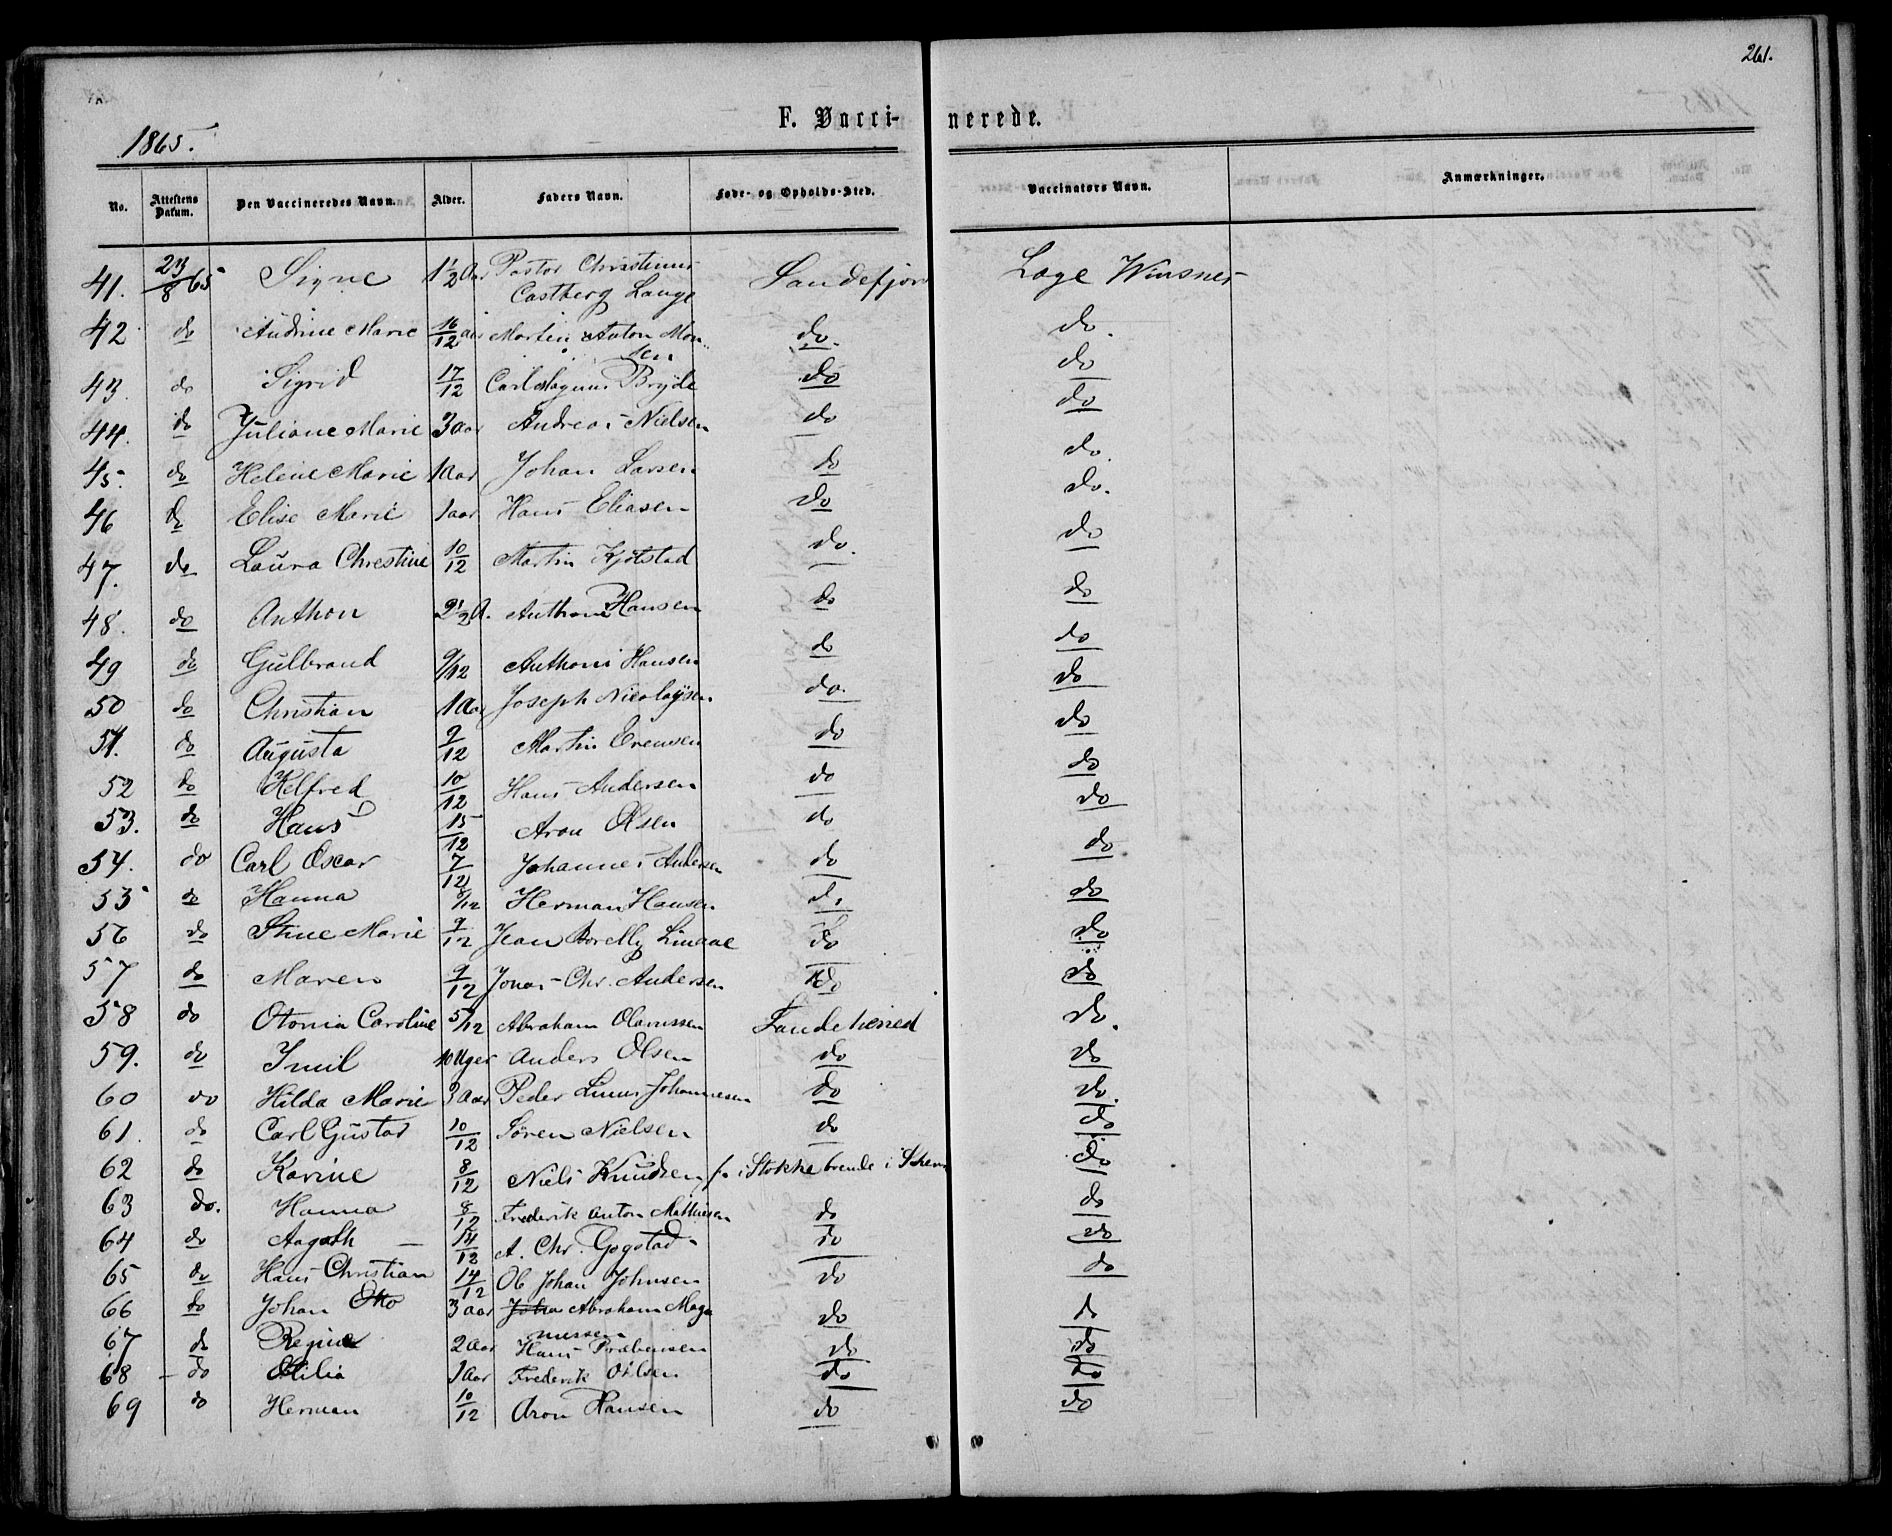 261.
F. Vaccinerede.
1865.
No. Attestens Datum. Den Vaccineredes Navn. Alder. Faders Navn. Føde- og Opholds-Sted. Vaccinators Navn. Anmærkninger.
41. 23/8 65 Signe 1 1/2 Aar Pastor Christinus Castberg Lange Sandefjord Læge Winsnes
42 do Andrine Marie 16/12 aar Martin Anton Monsen do. do.
43. do Sigrid 17/12 Carl Magnus Bryde do do
44. do Juliane Marie 3 aar Andreas Nielsen do do
45. do Helene Marie 1 Aar Johan Larsen do do.
46 do Elise Marie 1 aar Hans Eliasen do do.
47. do Laura Christine 10/12 Martin Kjølstad do. do
48. do Anthon 2 1/2 A. Anthoni Hansen do do
49 do Gulbrand 9/12 Anthoni Hansen do do
50 do Christian 1 Aar Joseph Nicolaysen do. do
51. do Augusta 9/12 Martin Evensen do do
52 do Helfred 10/12 Hans Andersen do do
53. do Hans 15/12 Aron Olsen do do
54. do Carl Oscar 7/12 Johannes Andersen do do
55 do Hanna 8/12 Herman Hansen do do
56 do Stine Marie 9/12 Jean Borelly Linaae do do
57 do Maren 9/12 Jonas Chr. Andersen do do
58 do Otonia Caroline 5/12 Abraham Olavussen Sandeherred do.
59. do Imil 10 Uger Anders Olsen do do
60 do Hilda Marie 3 Aar Peder Linus Johannesen do do.
61. do Carl Gustav 10/12 Søren Nielsen do do
62 do Karine 8/12 Niels Knudsen f. i Stokke boende i Skien do
63 do. Hanna 8/12 Frederik Anton Mathiesen do do
64 do Aagoth 14/12 A. Chr. Gogstad do do
65 do Hans Christian 14/12 Ole Johan Johnsen do do
66 do Johan Otto 3 aar Abraham Magnussen do do
67 do Regine 2 Aar Hans Præbensen do do
68 do Otilia 1 Aar Frederik Ohlsen do do
69 do Herman 10/12 Aron Hansen do do